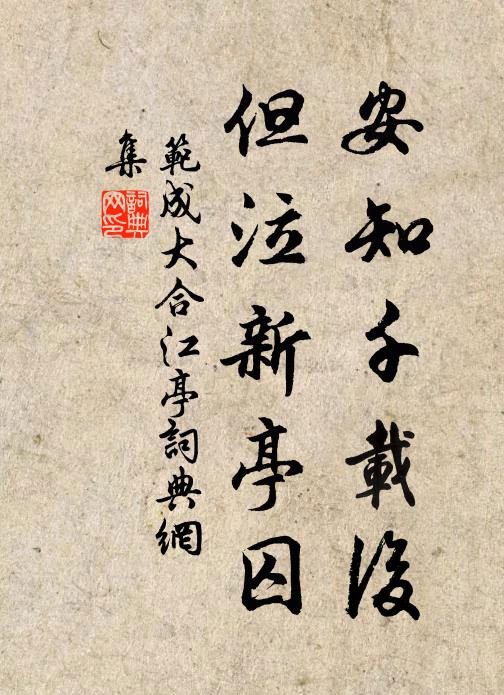 安知千載後
但泣新亭囚
範成大合江亭詞典網
集
詞典
网印